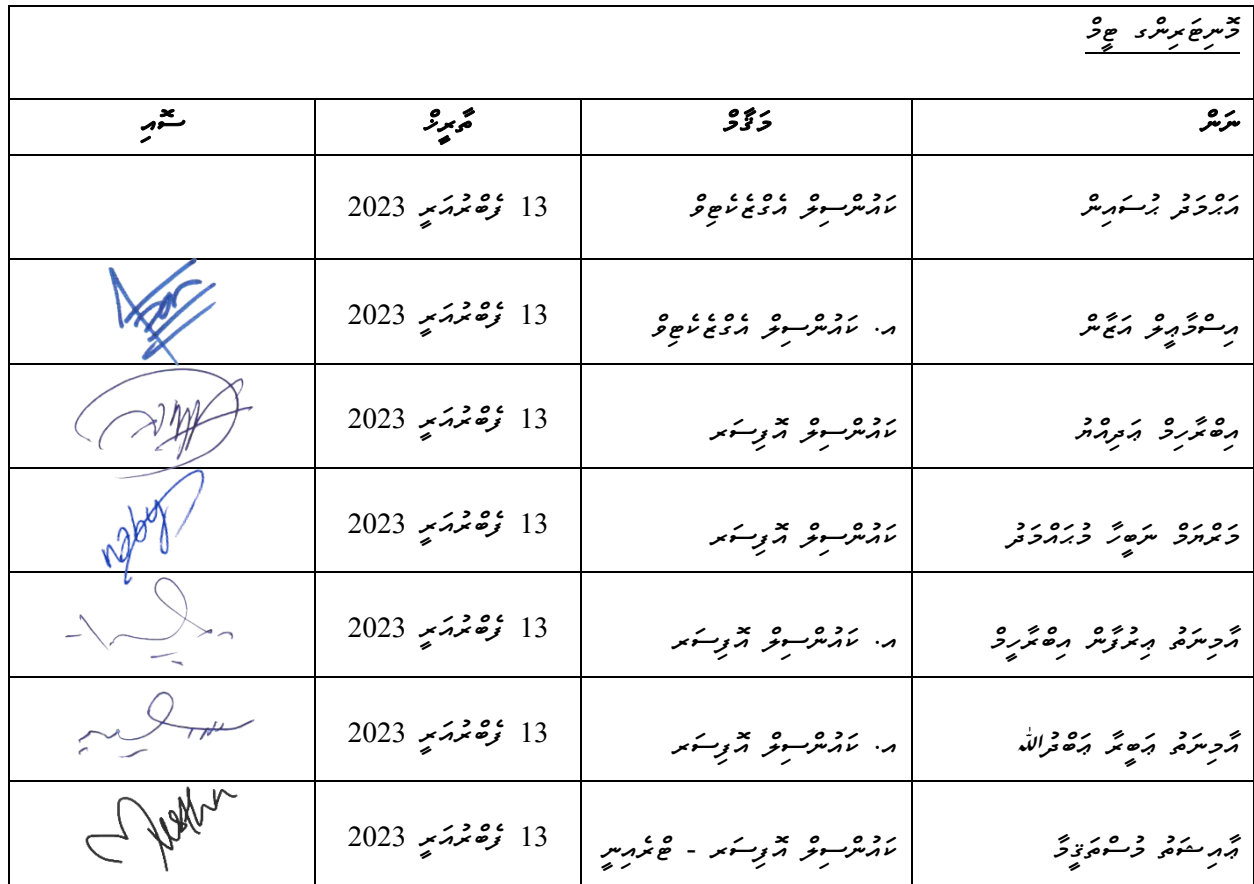 މޮނިޓަރިންގ ޓީމް
ނަން މަޤާމް ތާރީޚް ސޮއި
އަޙްމަދު ޙުސައިން ކައުންސިލް އެގްޒެކެޓިވް 13 ފެބްރުއަރީ 2023
އިސްމާޢީލް އަޒާން އ. ކައުންސިލް އެގްޒެކެޓިވް 13 ފެބްރުއަރީ 2023
އިބްރާހިމް ޢަދިއްޔު ކައުންސިލް އޮފިސަރ 13 ފެބްރުއަރީ 2023
މަރްޔަމް ނަބީހާ މުޙައްމަދު ކައުންސިލް އޮފިސަރ 13 ފެބްރުއަރީ 2023
އާމިނަތު ޢިރުފާން އިބްރާހީމް އ. ކައުންސިލް އޮފިސަރ 13 ފެބްރުއަރީ 2023
އާމިނަތު ޢަބީރާ ޢަބްދުﷲ އ. ކައުންސިލް އޮފިސަރ 13 ފެބްރުއަރީ 2023
ޢާއިޝަތު މުސްތަޤީމާ ކައުންސިލް އޮފިސަރ - ޓްރެއިނީ 13 ފެބްރުއަރީ 2023